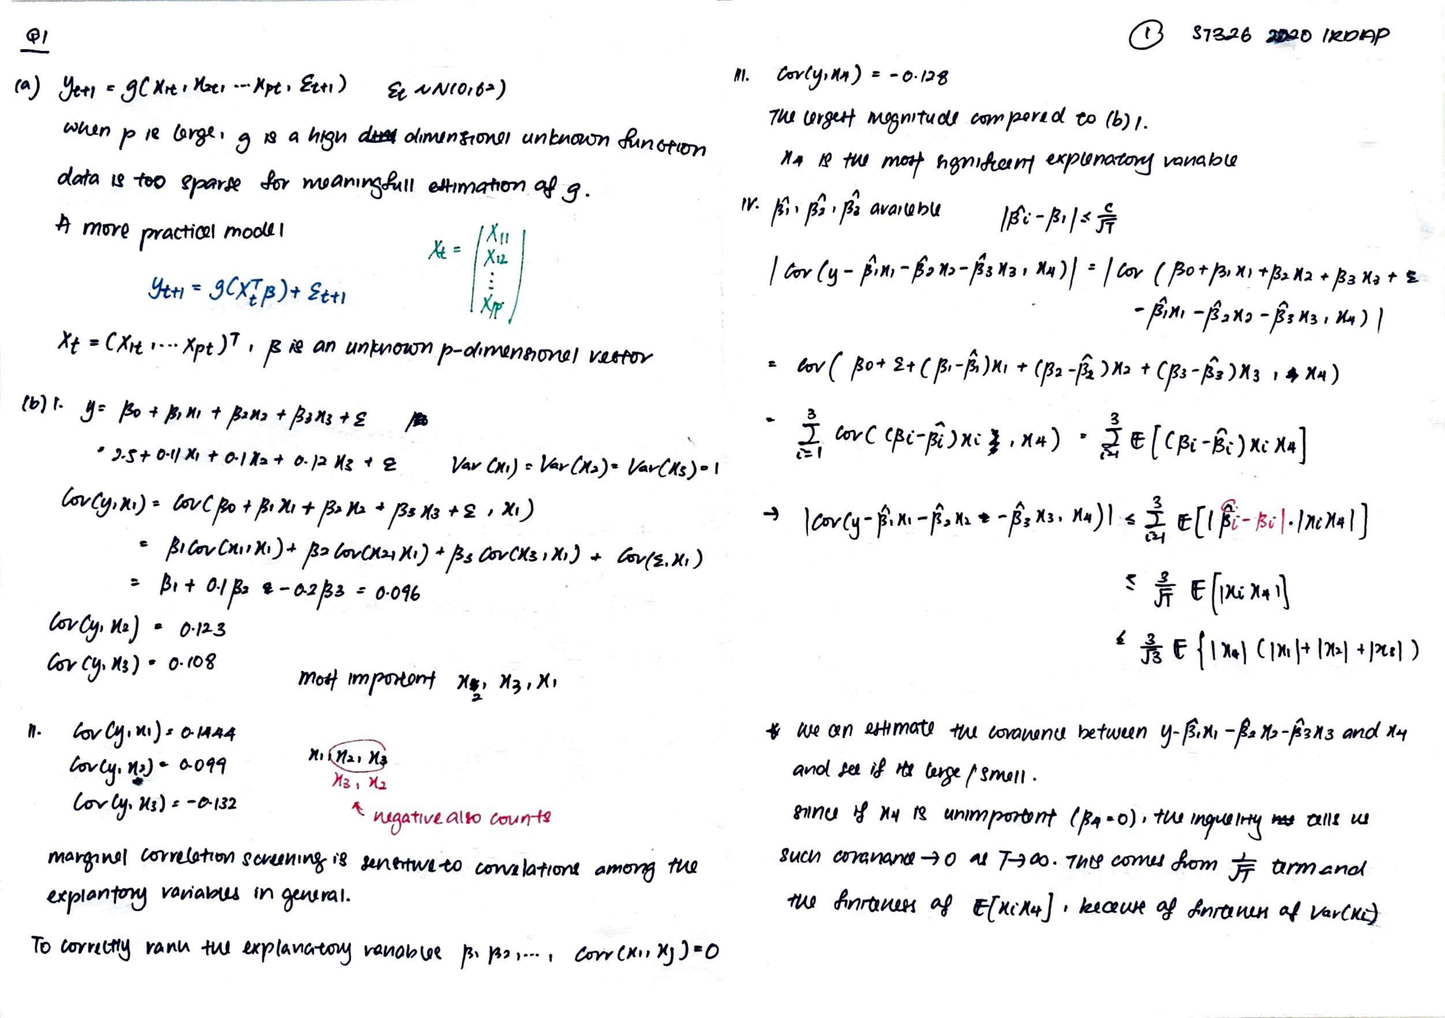 Q1
(a) yt+1 = g(x1t, x2t, ... xpt, εt+1) εt ~ N(0, σ²)
when p is large, g is a high dimensional unknown function
data is too sparse for meaningfull estimation of g.
A more practical model
Xt = (X11 X12 ⋮ X1p)
yt+1 = g(XtᵀΒ) + εt+1
Xt = (X1t, ... Xpt)ᵀ, β is an unknown p-dimensional vector
(b) i. y = β0 + β1x1 + β2x2 + β3x3 + ε
= 2.5 + 0.11x1 + 0.1x2 + 0.12x3 + ε Var(x1) = Var(x2) = Var(x3) = 1
Cov(y, x1) = Cov(β0 + β1x1 + β2x2 + β3x3 + ε, x1)
= β1Cov(x1, x1) + β2Cov(x2, x1) + β3Cov(x3, x1) + Cov(ε, x1)
= β1 + 0.1β2 - 0.2β3 = 0.096
Cov(y, x2) = 0.123
Cov(y, x3) = 0.108
most important x2, x3, x1
ii. Cov(y, x1) = 0.1444
Cov(y, x2) = 0.099
Cov(y, x3) = -0.132
x1, x2, x3
x3, x2
negative also counts
marginal correlation screening is sensitive to correlations among the
explantory variables in general.
To correctly rank the explanatory variables β1 β2, ..., Corr(xi, xj) = 0
① ST326 2020 IRDAP
iii. Cov(y, x4) = -0.128
The largest magnitude compared to (b) i.
x4 is the most significant explanatory variable
iv. β̂1, β̂2, β̂3 available |β̂i - βi| ≤ c/√T
|Cov(y - β̂1x1 - β̂2x2 - β̂3x3, x4)| = |Cov(β0 + β1x1 + β2x2 + β3x3 + ε
- β̂1x1 - β̂2x2 - β̂3x3, x4)|
= Cov(β0 + ε + (β1-β̂1)x1 + (β2-β̂2)x2 + (β3-β̂3)x3, x4)
= Σ³i=1 Cov((βi-β̂i)xi, x4) = Σ³i=1 E[(βi-β̂i)xi x4]
→ |Cov(y - β̂1x1 - β̂2x2 - β̂3x3, x4)| ≤ Σ³i=1 E[|β̂i-βi|·|xi x4|]
≤ 3/√T E[|xi x4|]
≤ 3/√3 E{|x4|(|x1|+|x2|+|x3|)
* we can estimate the covariance between y-β̂1x1-β̂2x2-β̂3x3 and x4
and see if its large/small.
since if x4 is unimportant (β4=0), the inquelity tells us
such covariance → 0 as T→∞. This comes from 1/√T term and
the finiteness of E[xi x4], because of finiteness of Var(xi)